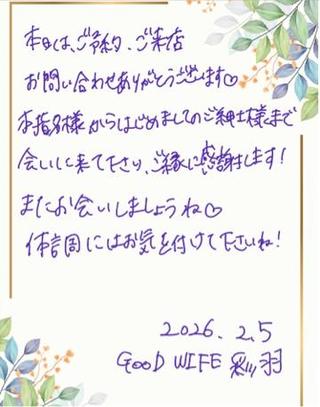 本日は、ご予約、ご来店
お問い合わせありがとうございます♡
本指名様からはじめましてのご紳士様まで
会いに来て下さり、ご縁に感謝します！
またお会いしましょうね♡
体調にはお気を付けて下さいね！
2026.2.5
GOOD WIFE 彩羽